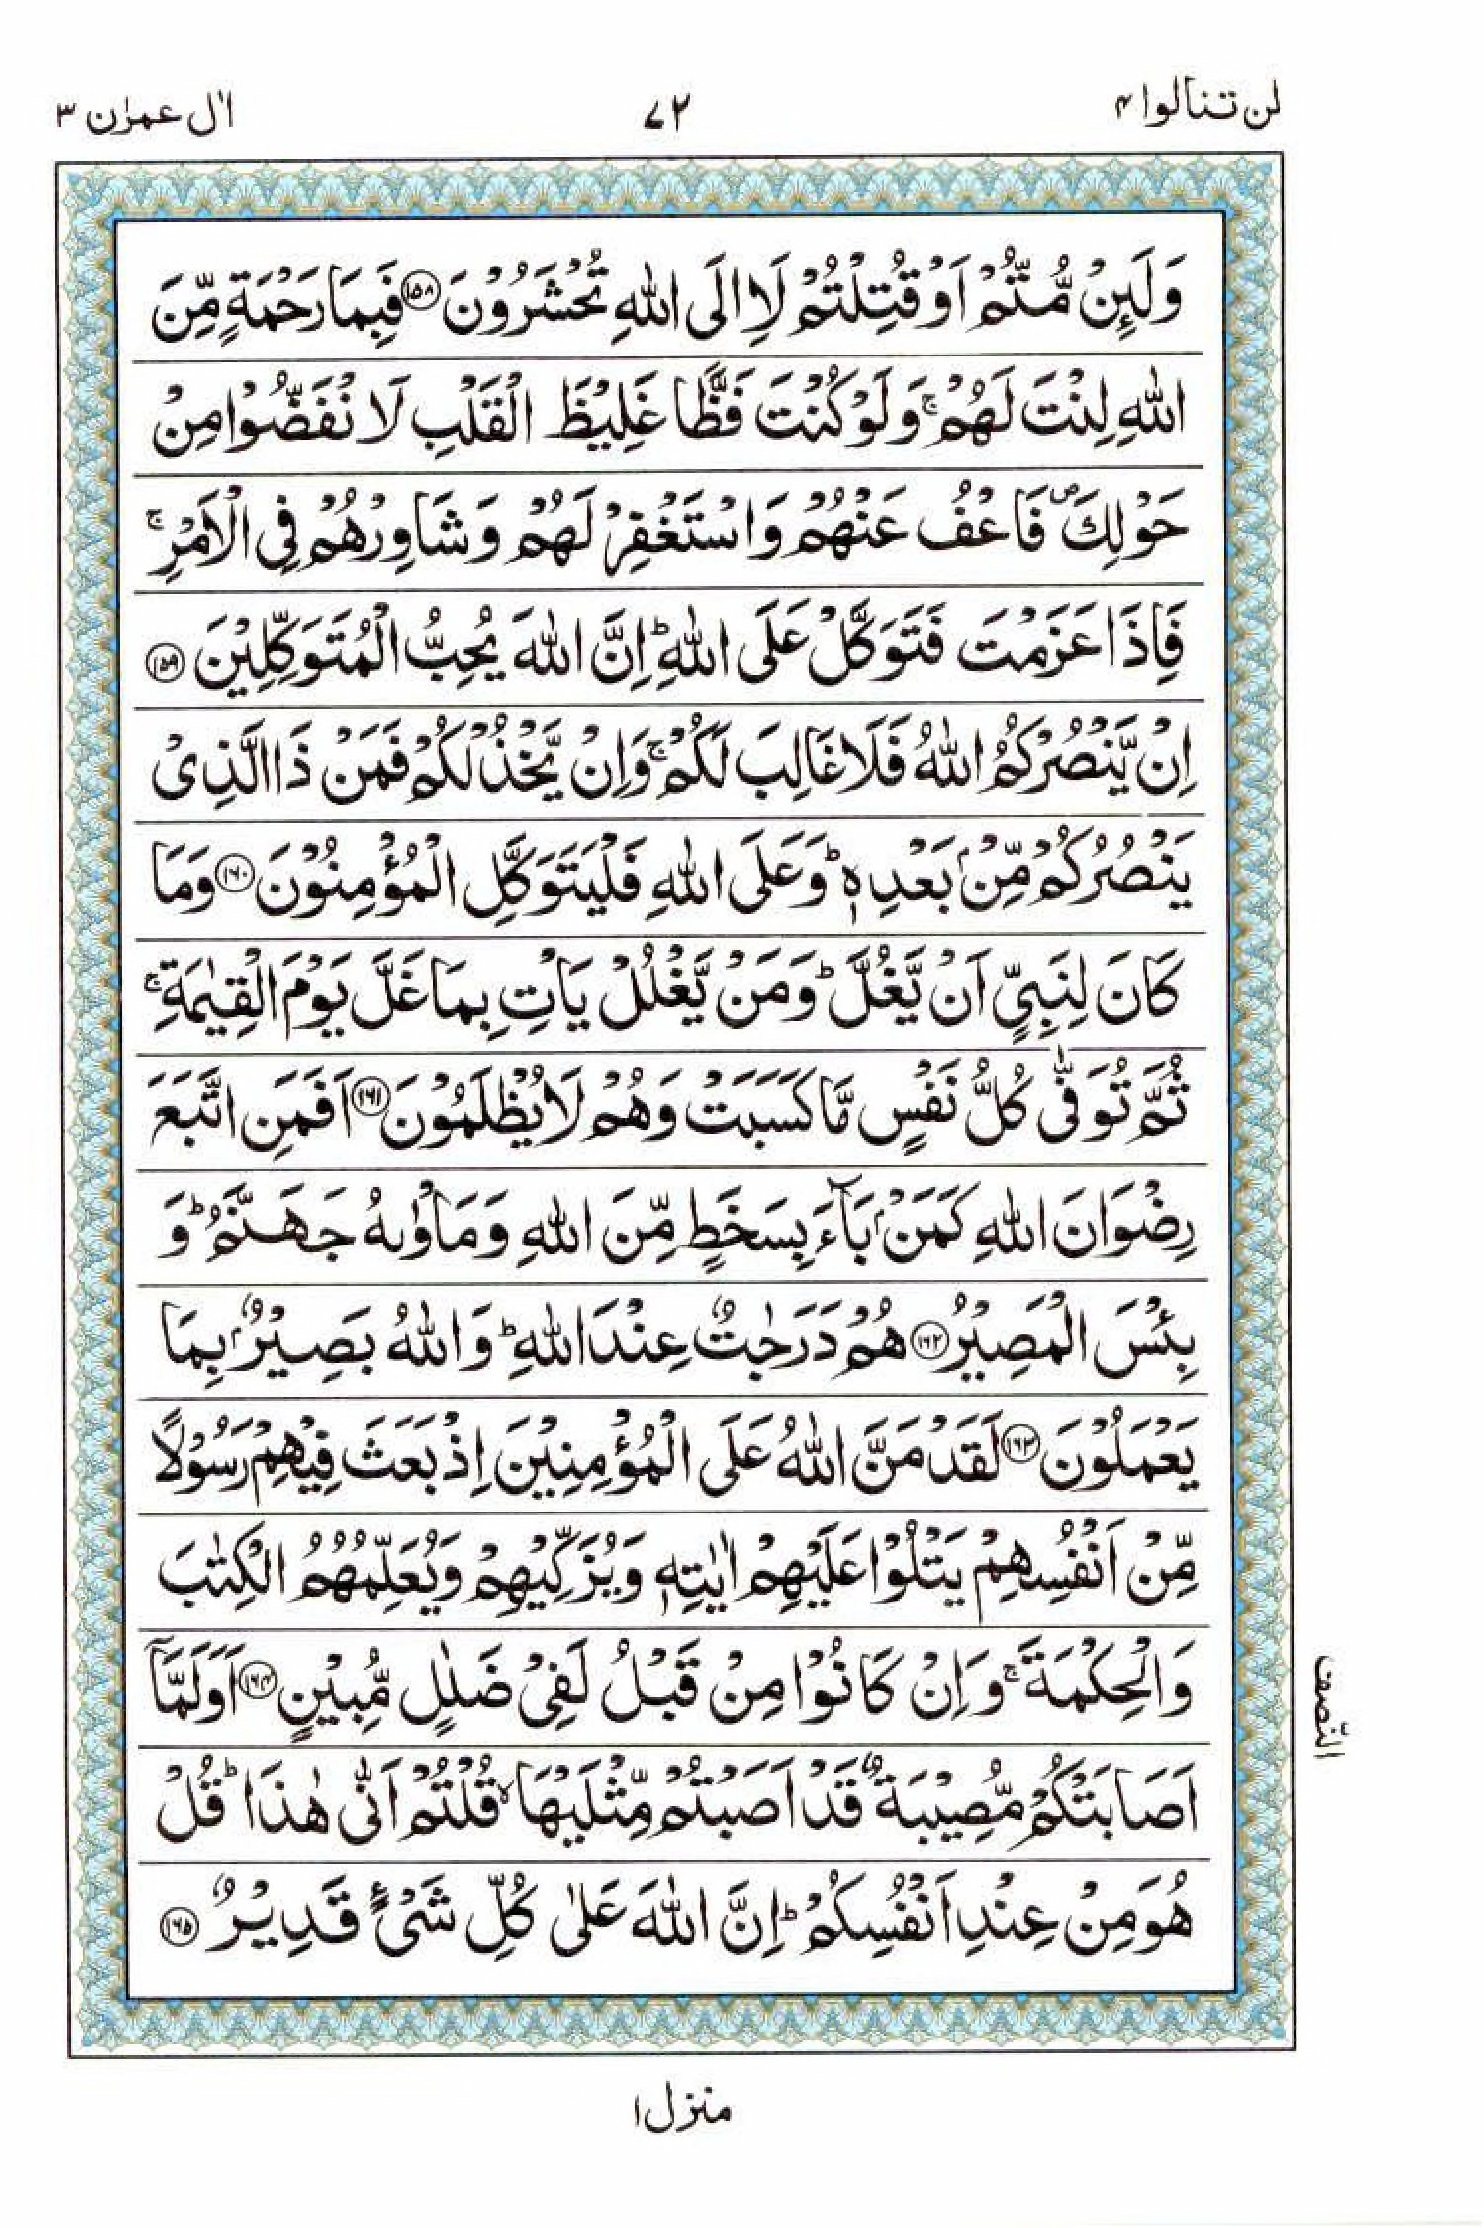 لن تنالوا ۴
۷۲
اٰل عمرٰن ۳
وَلَئِنْ مُّتُّمْ اَوْ قُتِلْتُمْ لَاِالَى اللّٰهِ تُحْشَرُوْنَ ﴿۱۵۸﴾ فَبِمَا رَحْمَةٍ مِّنَ
اللّٰهِ لِنْتَ لَهُمْ ۚ وَلَوْ كُنْتَ فَظًّا غَلِيْظَ الْقَلْبِ لَا نْفَضُّوْا مِنْ
حَوْلِكَ ۪ فَاعْفُ عَنْهُمْ وَاسْتَغْفِرْ لَهُمْ وَشَاوِرْهُمْ فِى الْاَمْرِ ۚ
فَاِذَا عَزَمْتَ فَتَوَكَّلْ عَلَى اللّٰهِ ؕ اِنَّ اللّٰهَ يُحِبُّ الْمُتَوَكِّلِيْنَ ﴿۱۵۹﴾
اِنْ يَّنْصُرْكُمُ اللّٰهُ فَلَا غَالِبَ لَكُمْ ۚ وَاِنْ يَّخْذُلْكُمْ فَمَنْ ذَا الَّذِىْ
يَنْصُرُكُمْ مِّنْۢ بَعْدِهٖ ؕ وَعَلَى اللّٰهِ فَلْيَتَوَكَّلِ الْمُؤْمِنُوْنَ ﴿۱۶۰﴾ وَمَا
كَانَ لِنَبِىٍّ اَنْ يَّغُلَّ ؕ وَمَنْ يَّغْلُلْ يَاْتِ بِمَا غَلَّ يَوْمَ الْقِيٰمَةِ ۚ
ثُمَّ تُوَفّٰى كُلُّ نَفْسٍ مَّا كَسَبَتْ وَهُمْ لَا يُظْلَمُوْنَ ﴿۱۶۱﴾ اَفَمَنِ اتَّبَعَ
رِضْوَانَ اللّٰهِ كَمَنْۢ بَآءَ بِسَخَطٍ مِّنَ اللّٰهِ وَمَاْوٰىهُ جَهَنَّمُ ؕ وَ
بِئْسَ الْمَصِيْرُ ﴿۱۶۲﴾ هُمْ دَرَجٰتٌ عِنْدَ اللّٰهِ ؕ وَاللّٰهُ بَصِيْرٌۢ بِمَا
يَعْمَلُوْنَ ﴿۱۶۳﴾ لَقَدْ مَنَّ اللّٰهُ عَلَى الْمُؤْمِنِيْنَ اِذْ بَعَثَ فِيْهِمْ رَسُوْلًا
مِّنْ اَنْفُسِهِمْ يَتْلُوْا عَلَيْهِمْ اٰيٰتِهٖ وَيُزَكِّيْهِمْ وَيُعَلِّمُهُمُ الْكِتٰبَ
وَالْحِكْمَةَ ۚ وَاِنْ كَانُوْا مِنْ قَبْلُ لَفِىْ ضَلٰلٍ مُّبِيْنٍ ﴿۱۶۴﴾ اَوَلَمَّآ
اَصَابَتْكُمْ مُّصِيْبَةٌ قَدْ اَصَبْتُمْ مِّثْلَيْهَا ۙ قُلْتُمْ اَنّٰى هٰذَا ؕ قُلْ
هُوَ مِنْ عِنْدِ اَنْفُسِكُمْ ؕ اِنَّ اللّٰهَ عَلٰى كُلِّ شَىْءٍ قَدِيْرٌ ﴿۱۶۵﴾
النّصف
منزل ۱